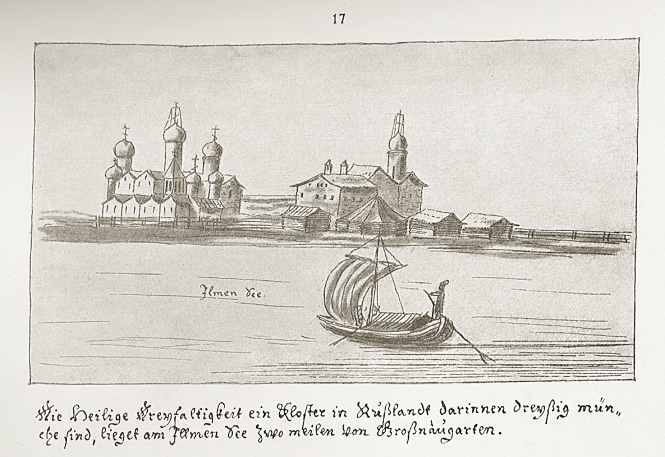 17
Ilmen See.
Die Heilige Dreyfaltigkeit ein Kloster in Rußlandt darinnen dreyßig mün„
che sind, lieget am Illmen See zwo meilen von Großnäugarten.